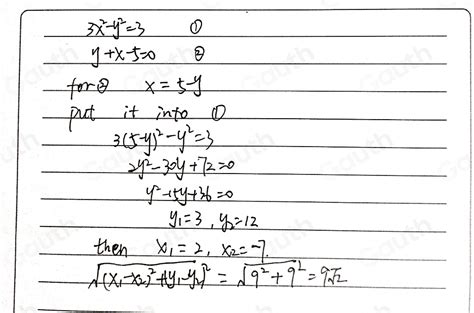 3x²-y²=3 ①
y+x-5=0 ②
for② x=5-y
put it into ①
3(5-y)²-y²=3
2y²-30y+72=0
y²-15y+36=0
y₁=3, y₂=12
then x₁=2, x₂=-7.
√(x₁-x₂)²+(y₁-y₂)² = √9²+9² = 9√2